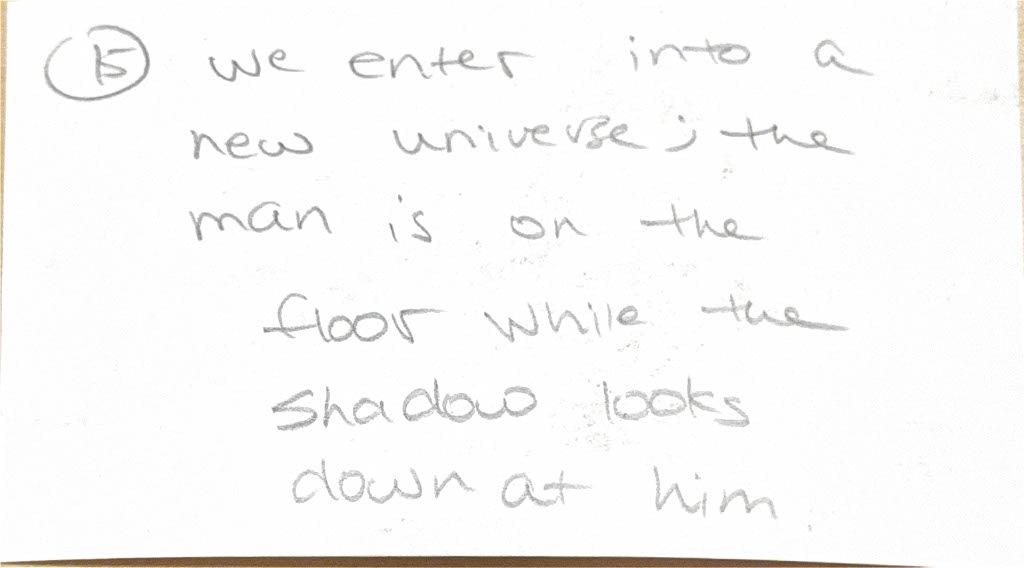 15 we enter into a
new universe; the
man is on the
floor while the
shadow looks
down at him.